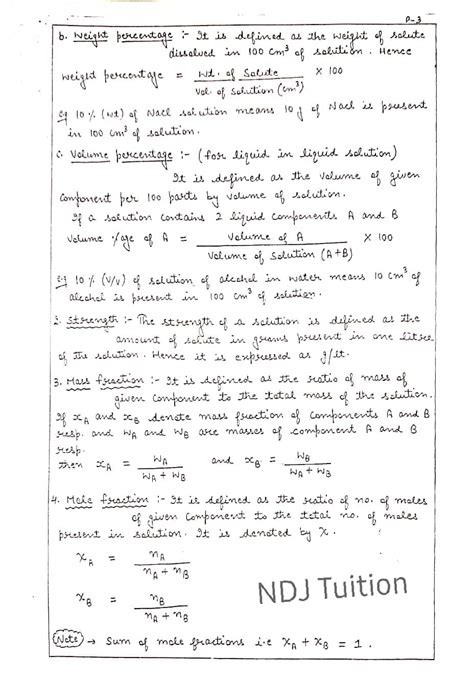 P-3
b. Weight percentage :- It is defined as the weight of solute
dissolved in 100 cm³ of solution. Hence
weight percentage = Wt. of Solute / Vol. of Solution (cm³) × 100
eg 10 % (wt) of Nacl solution means 10 g of Nacl is present
in 100 cm³ of solution.
c. Volume percentage :- (for liquid in liquid solution)
It is defined as the volume of given
Component per 100 parts by volume of solution.
If a solution contains 2 liquid Components A and B
Volume %age of A = Volume of A / Volume of Solution (A+B) × 100
eg 10 % (v/v) of solution of alcohol in water means 10 cm³ of
alcohol is present in 100 cm³ of solution.
2. Strength :- The strength of a solution is defined as the
amount of solute in grams present in one litre
of the solution. Hence it is expressed as g/lt.
3. Mass fraction :- It is defined as the ratio of mass of
given component to the total mass of the solution.
If xA and xB denote mass fraction of Components A and B
resp. and WA and WB are masses of component A and B
resp.
then xA = WA / WA + WB and xB = WB / WA + WB
4. Mole fraction :- It is defined as the ratio of no. of moles
of given Component to the total no. of moles
present in solution. It is denoted by X.
XA = nA / nA + nB
XB = nB / nA + nB
NDJ Tuition
Note → Sum of mole fractions i.e XA + XB = 1.